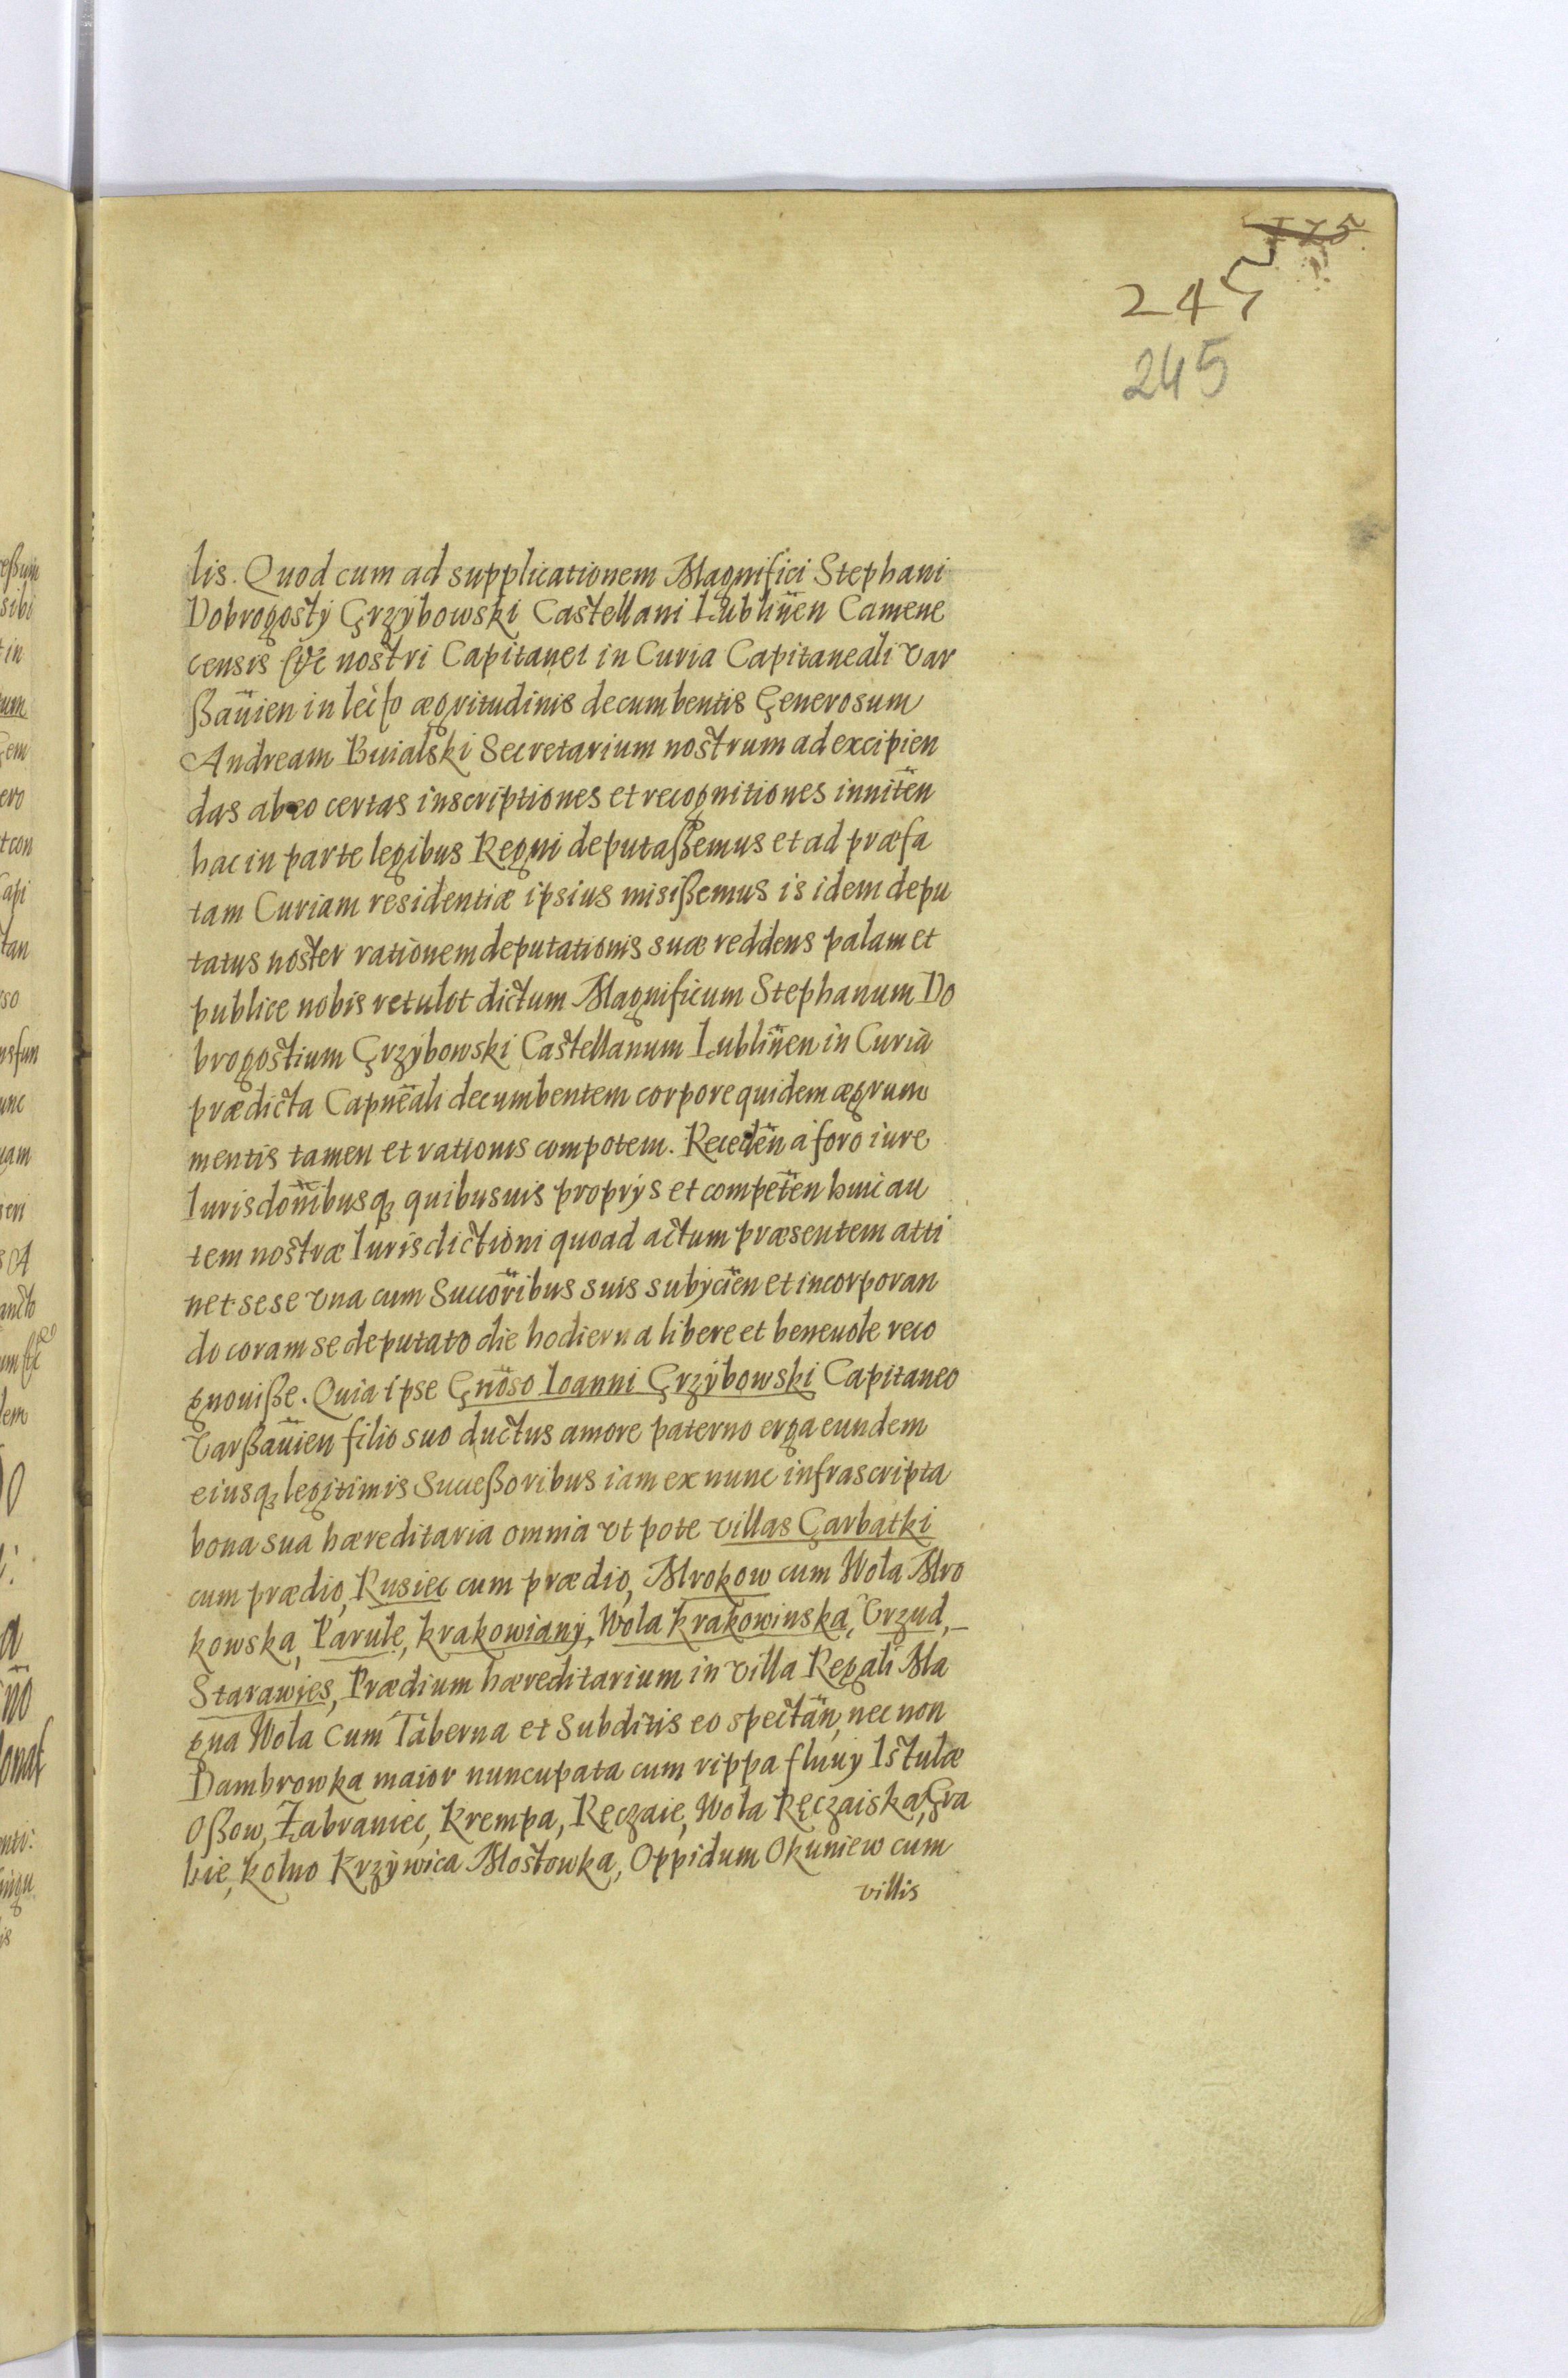 175
245
245
lis. Quod cum ad supplicationem Magnifici Stephani
Dobrogosty Grzybowski Castellani Lublinen Camene
censis etc nostri Capitanei in Curia Capitaneali Var
ßauien in lecto ægritudinis decumbentis Generosum
Andream Buialski Secretarium nostrum ad excipien
das ab eo certas inscriptiones et recognitiones inniten
hac in parte legibus Regni deputaßemus et ad præfa
tam Curiam residentiæ ipsius misißemus is idem depu
tatus noster rationem deputationis suæ reddens palam et
publice nobis retulit dictum Magnificum Stephanum Do
brogostium Grzybowski Castellanum Lublinen in Curia
prædicta Capneali decumbentem corpore quidem ægrum
mentis tamen et rationis compotem. Receden a foro iure
Iurisdonibusq quibusuis proprys et competen huic au
tem nostræ Iurisdictioni quoad actum præsentem atti
net sese vna cum Succoribus suis subycien et incorporan
do coram se deputato die hodierna libere et beneuole reco
gnouiße. Quia ipse Gnoso Ioanni Grzybowski Capitaneo
Varßauien filio suo ductus amore paterno erga eundem
eiusq legitimis Succeßoribus iam ex nunc infrascripta
bona sua hæreditaria omnia vt pote villas Garbatki
cum prædio, Rusiec cum prædio, Mrokow cum Wola Mro
kowska, Parule, Krakowiany, Wola Krakowinska, Vrzud,
Starawies, Prædium hæreditarium in villa Regali Ma
gna Wola cum Taberna et Subditis eo spectan, nec non
Dambrowka maior nuncupata cum rippa fluuy Istulæ
Oßow, Zabraniec, Krempa, Ręczaie, Wola Ręczaiska, Gra
bie, Kolno Krzywica Mostowka, Oppidum Okuniew cum
villis